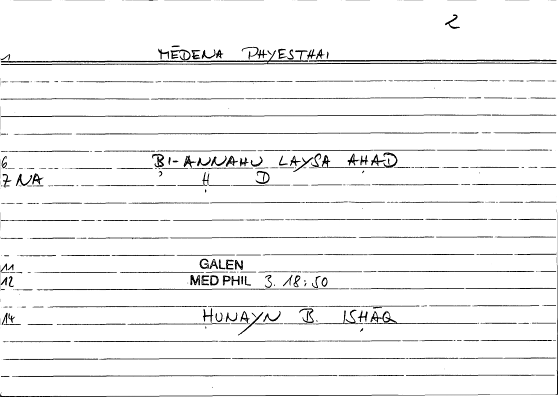 2
1 MĒDENA PHYESTHAI
6 BI-ANNAHU LAYSA AHAD
7 NA Ḥ D
11 GALEN
12 MED PHIL 3. 18:50
14 ḤUNAYN B. ISḤĀQ